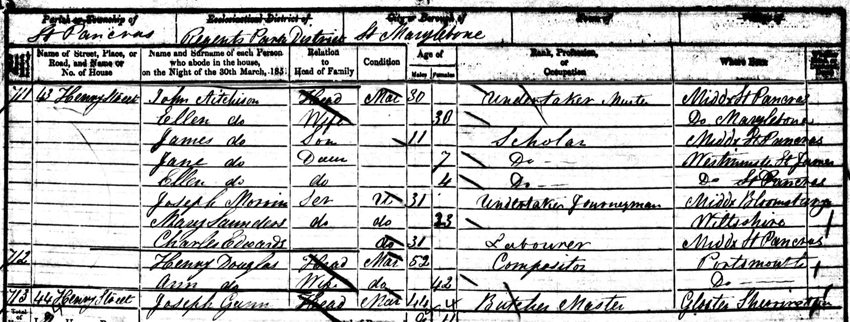 Parish or Township of Ecclesiastical District of City or Borough of Town of Village of
St Pancras Regents Park District St Marylebone
Name of Street, Place, or Road, and Name or No. of House Name and Surname of each Person who abode in the house, on the Night of the 30th March, 1851 Relation to Head of Family Condition Age of Males Females Rank, Profession, or Occupation Where Born
711 43 Henry Street John Aitchison Head Mar 30 Undertaker Master Middx St Pancras
Ellen do Wife 30 Do Marylebone
James do Son 11 Scholar Middx St Pancras
Jane do Daur 7 Do Westminster St James
Ellen do do 4 Do Do St Pancras
Joseph Ser U 31 Undertaker Journeyman Middx
Mary Saunders do do 23 Wiltshire
Charles Edwards do 31 Labourer Middx St Pancras
712 Henry Douglas Head Mar 52 Compositor Portsmouth
Ann do Wife do 42 Do
713 44 Henry Street Joseph Head Mar 44 Butcher Master Gloster
Total of